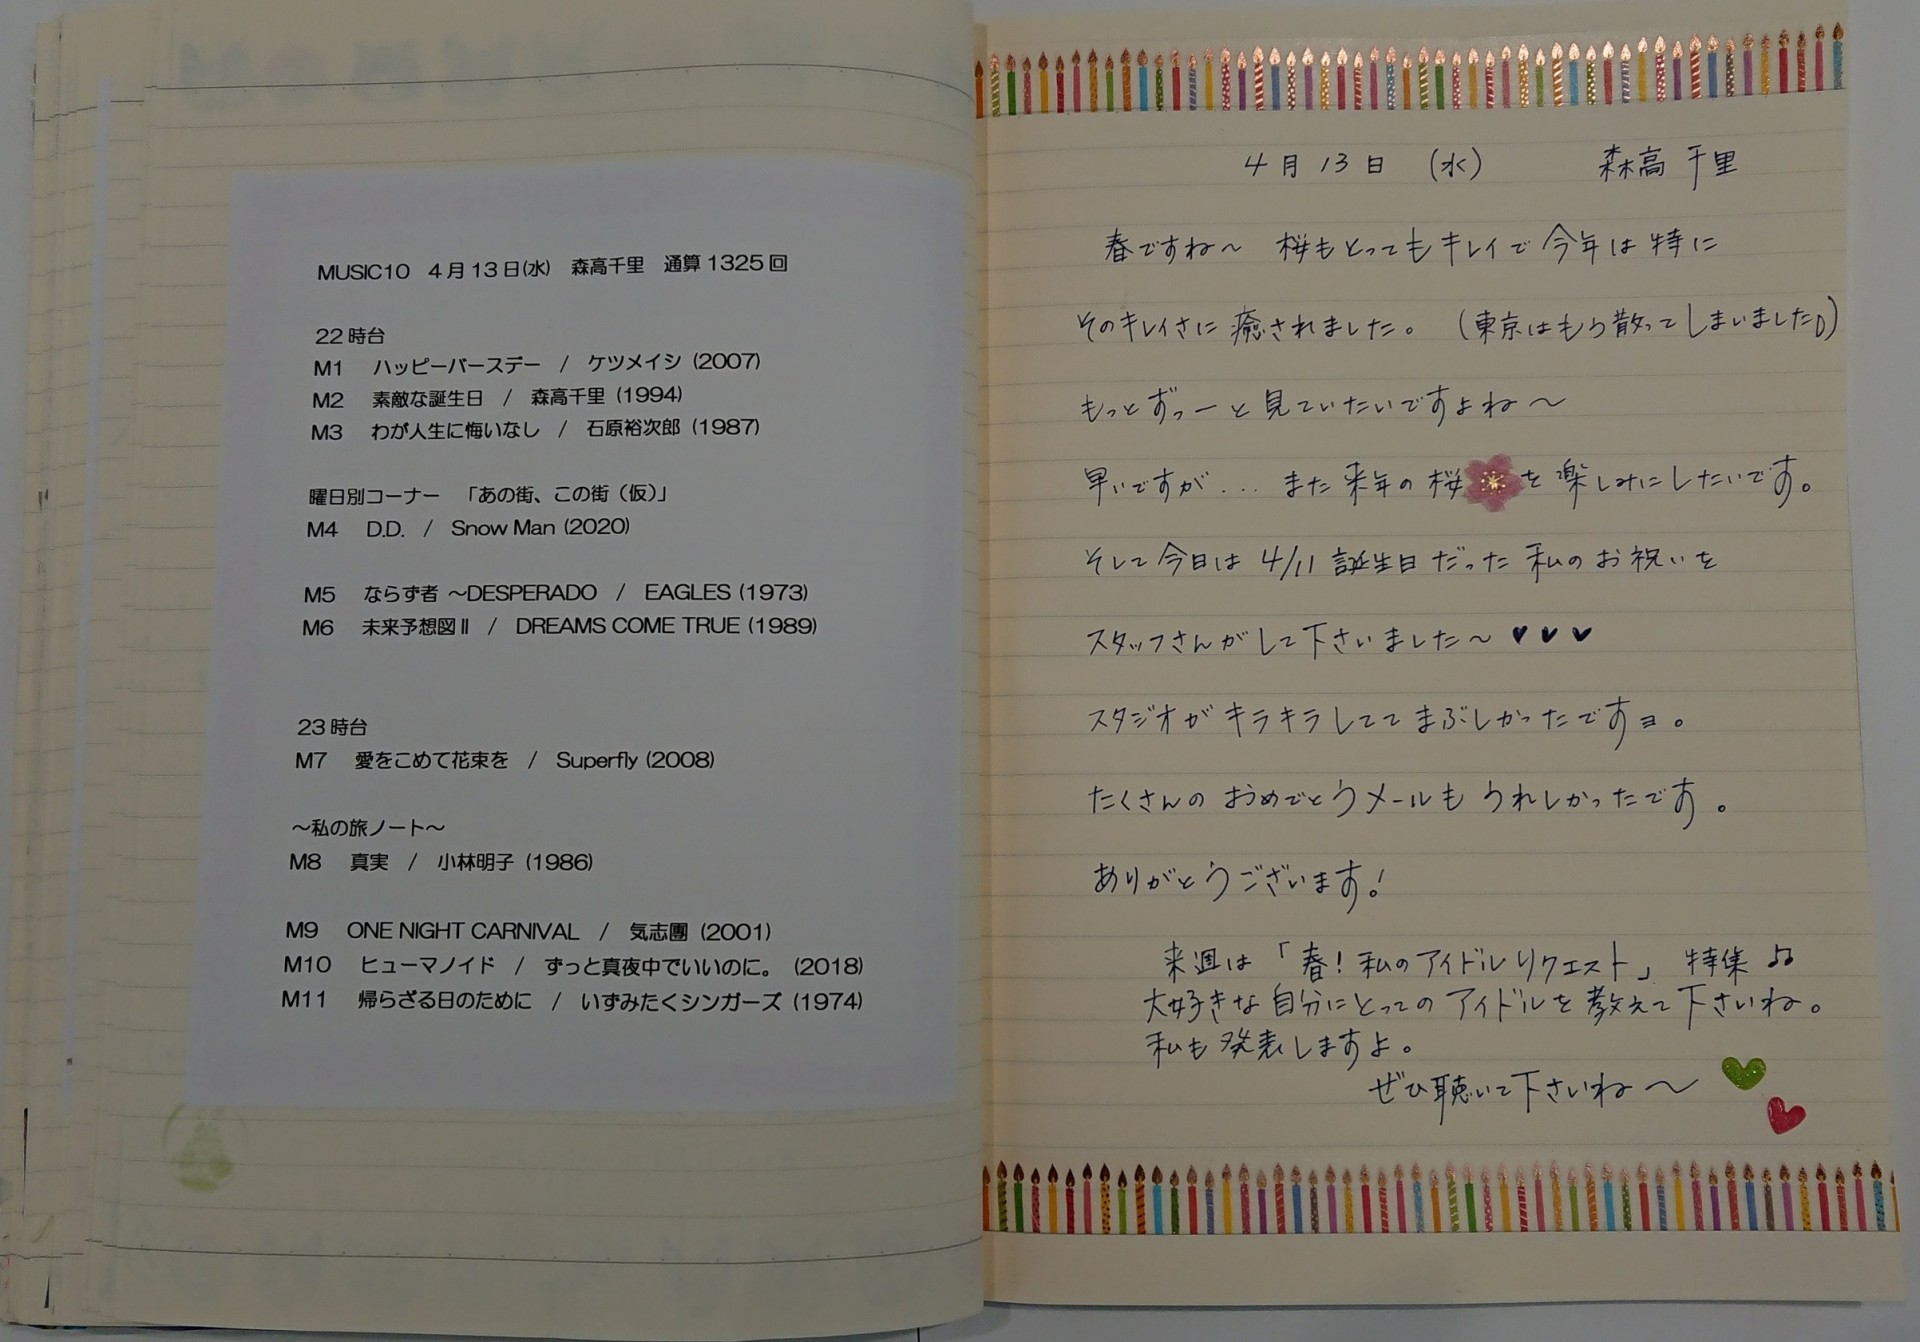 MUSIC10 4月13日(水) 森高千里 通算1325回
22時台
M1 ハッピーバースデー / ケツメイシ (2007)
M2 素敵な誕生日 / 森高千里 (1994)
M3 わが人生に悔いなし / 石原裕次郎 (1987)
曜日別コーナー 「あの街、この街(仮)」
M4 D.D. / Snow Man (2020)
M5 ならず者 ~DESPERADO / EAGLES (1973)
M6 未来予想図Ⅱ / DREAMS COME TRUE (1989)
23時台
M7 愛をこめて花束を / Superfly (2008)
~私の旅ノート~
M8 真実 / 小林明子 (1986)
M9 ONE NIGHT CARNIVAL / 気志團 (2001)
M10 ヒューマノイド / ずっと真夜中でいいのに。 (2018)
M11 帰らざる日のために / いずみたくシンガーズ (1974)
4月13日 (水) 森高千里
春ですね~ 桜もとってもキレイで今年は特に
そのキレイさに癒されました。 (東京はもう散ってしまいました)
もっとずっーと見ていたいですよね~
早いですが... また来年の桜🌸を楽しみにしたいです。
そして今日は 4/11 誕生日だった私のお祝いを
スタッフさんがして下さいました~ ♥♥♥
スタジオがキラキラしててまぶしかったですョ。
たくさんのおめでとうメールもうれしかったです。
ありがとうございます!
来週は「春!私のアイドルリクエスト」特集♫
大好きな自分にとってのアイドルを教えて下さいね。
私も発表しますよ。
ぜひ聴いて下さいね~